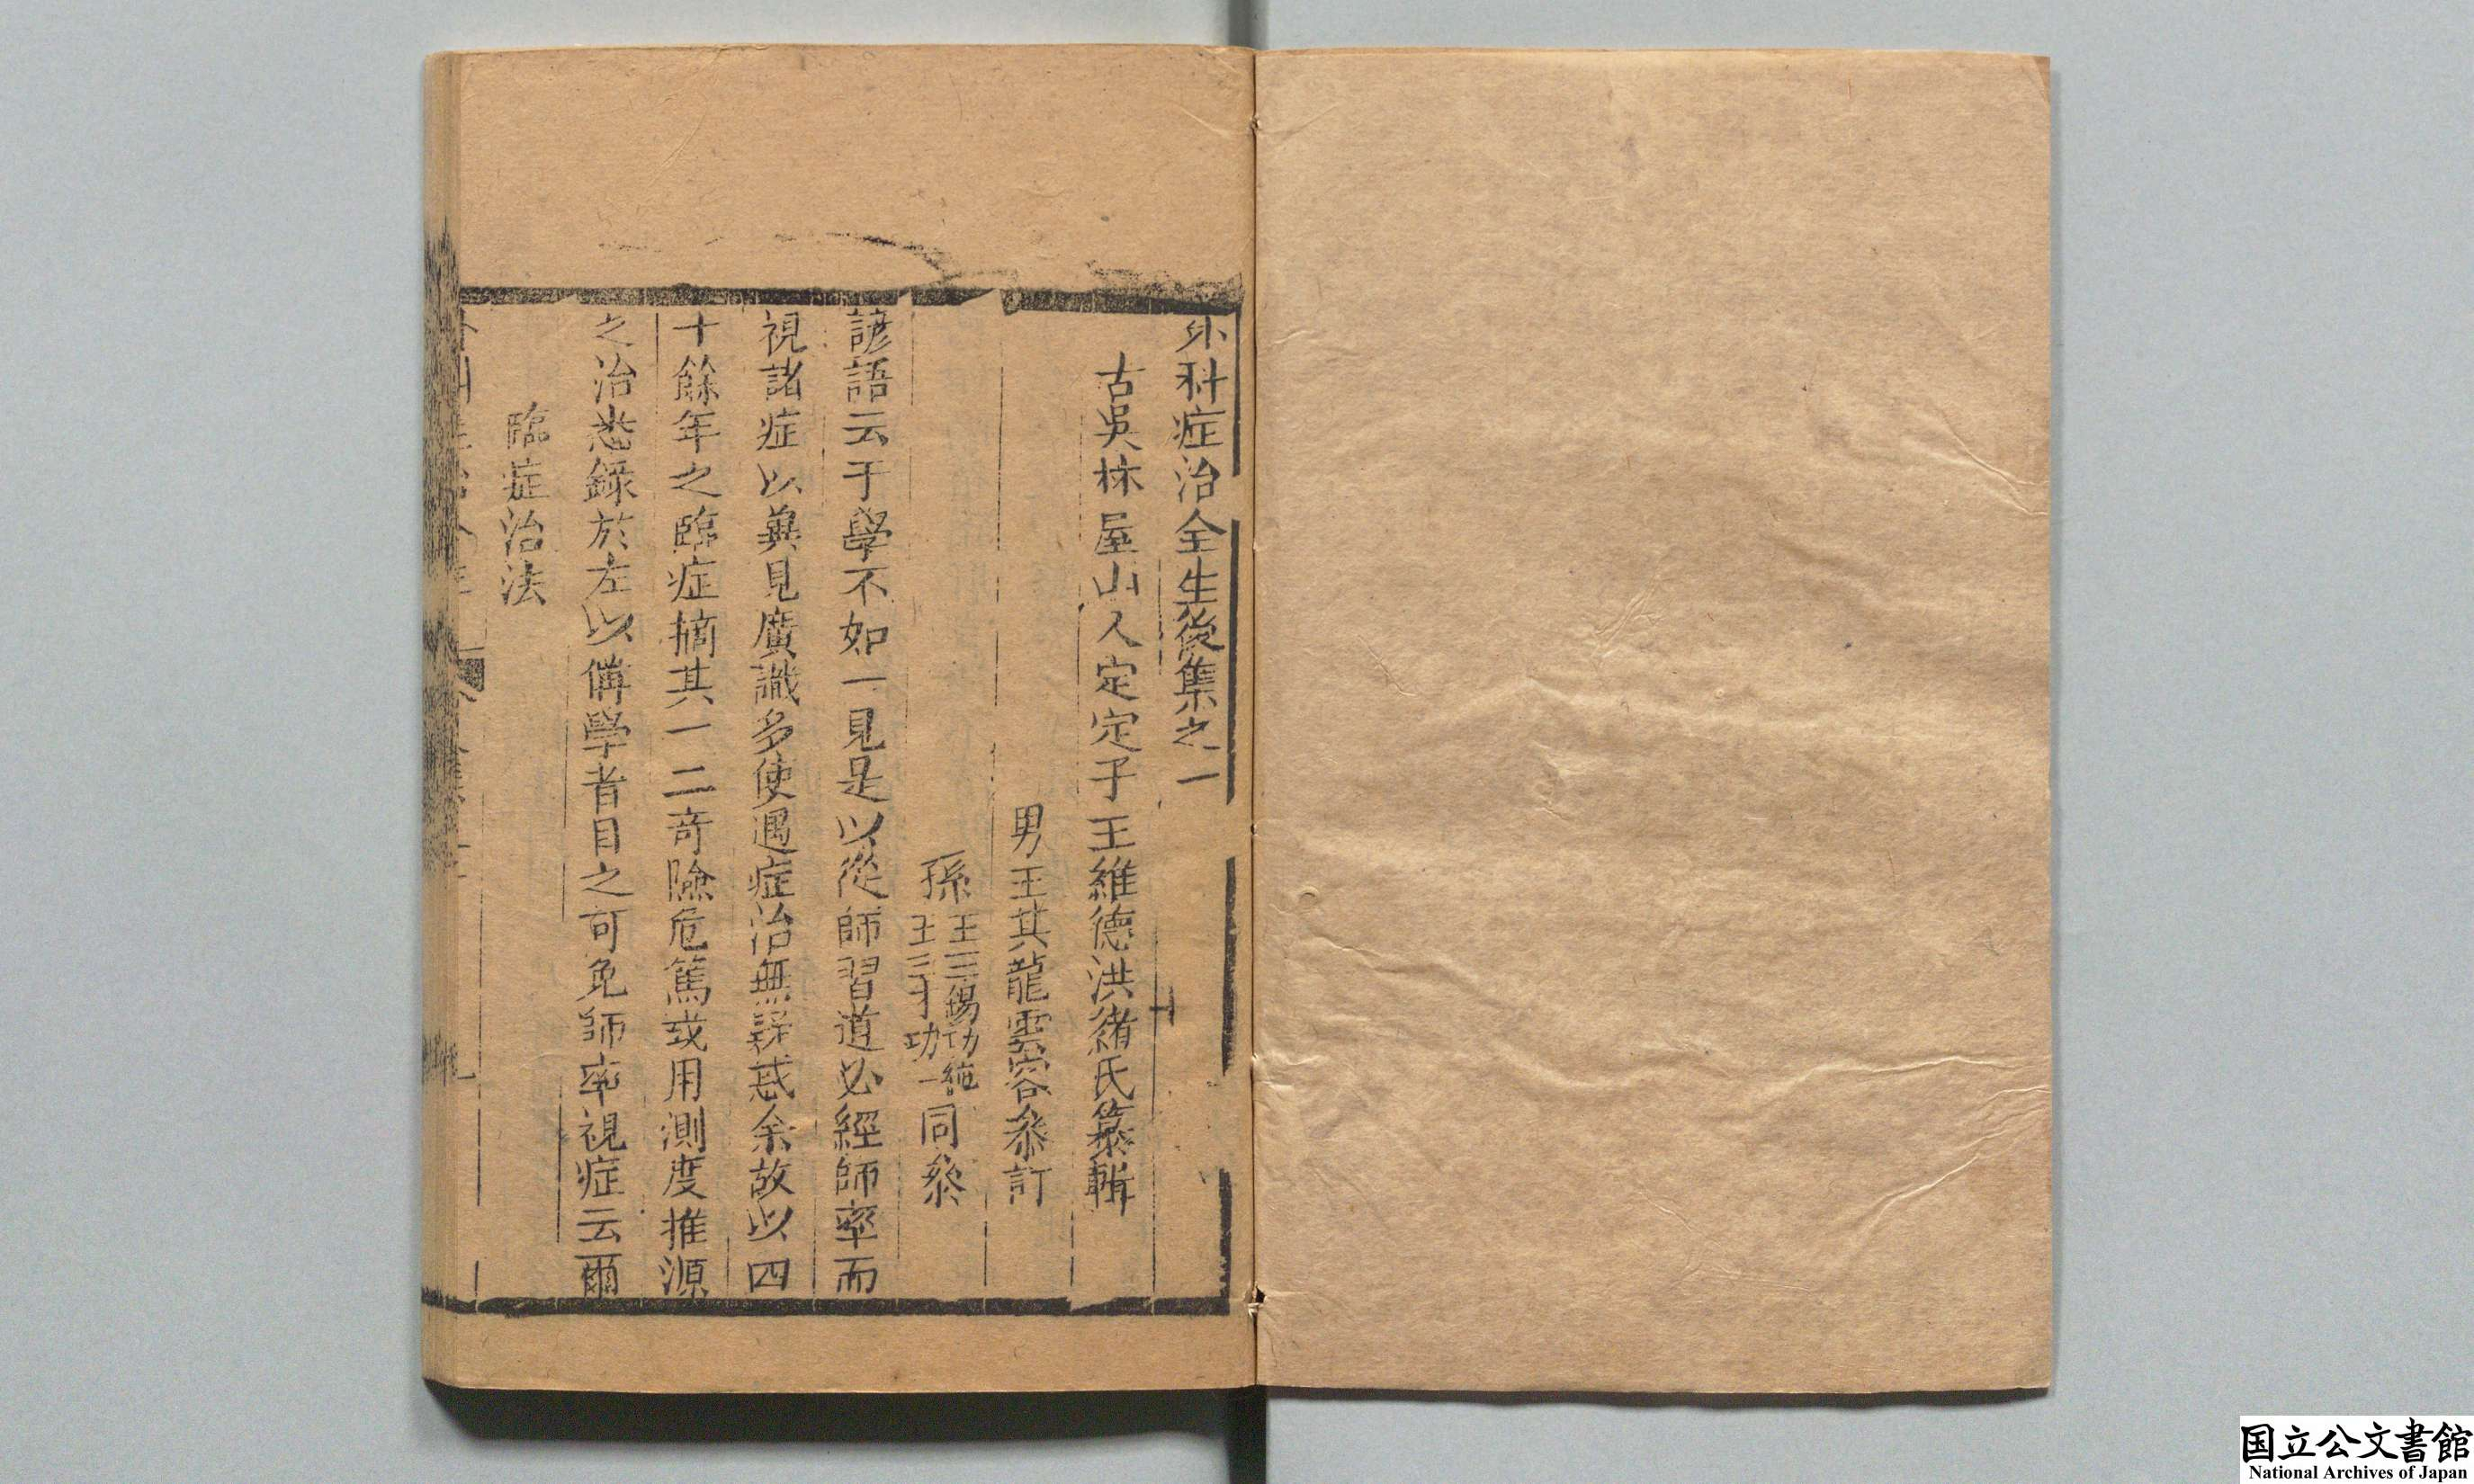 外科症治全生後集之一
古吳林屋山人定定子王維德洪緒氏纂輯
男王其龍雲容叅訂
孫
王三錫功純
王三才功一
同叅
諺語云千學不如一見是以從師習道必經師率而
視諸症以冀見廣識多使遇症治無疑惑余故以四
十餘年之臨症摘其一二奇險危篤或用測度推源
之治悉錄於左以俻學者目之可免師率視症云爾
臨症治法
国立公文書館
National Archives of Japan